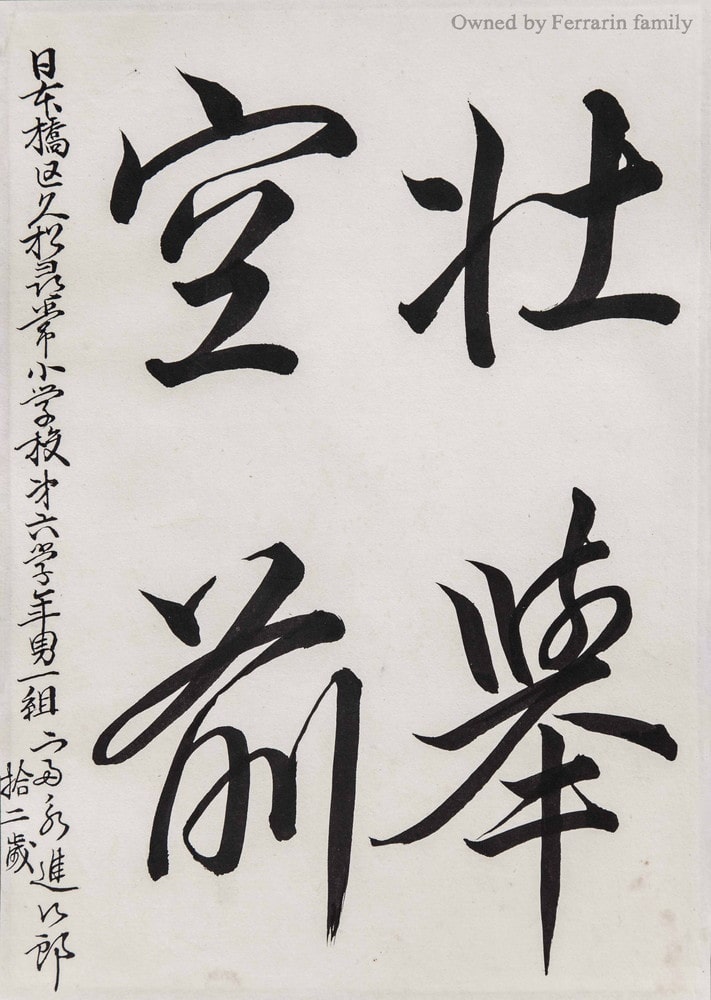 Owned by Ferrarin family
壮舉
空前
日本橋区久松尋常小学校第六学年男一組 冨永進次郎
拾二歳